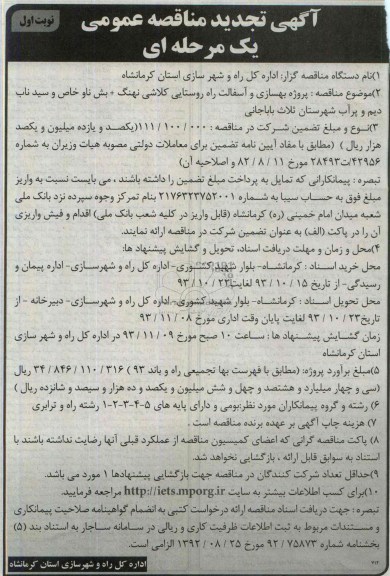 آگهی تجدید مناقصه عمومی
یک مرحله ای
نوبت اول
۱)نام دستگاه مناقصه گزار: اداره کل راه و شهر سازی استان کرمانشاه
۲)موضوع مناقصه : پروژه بهسازی و آسفالت راه روستایی کلاشی نهنگ + بش ناو خاص و سید ناب
دیم و پرآب شهرستان ثلاث باباجانی
۳)نوع و مبلغ تضمین شرکت در مناقصه : ۱۱۱/۱۰۰/۰۰۰(یکصد و یازده میلیون و یکصد
هزار ریال ) (مطابق با مفاد آیین نامه تضمین برای معاملات دولتی مصوبه هیات وزیران به شماره
۴۲۹۵۶ت۲۸۴۹۳ مورخ ۸۲/۸/۱۱ و اصلاحیه آن)
تبصره : پیمانکارانی که تمایل به پرداخت مبلغ تضمین را داشته باشند ، می بایست نسبت به واریز
مبلغ فوق به حساب سیبا به شماره ۲۱۷۶۴۲۳۷۵۲۰۰۱ بنام تمرکز وجوه سپرده نزد بانک ملی
شعبه میدان امام خمینی (ره) کرمانشاه (قابل واریز در کلیه شعب بانک ملی) اقدام و فیش واریزی
آن را در پاکت (الف) به عنوان تضمین شرکت در مناقصه ارائه نمایند.
۴)محل و زمان و مهلت دریافت اسناد، تحویل و گشایش پیشنهاد ها:
محل خرید اسناد : کرمانشاه- بلوار شهید کشوری- اداره کل راه و شهرسازی- اداره پیمان و
رسیدگی- از تاریخ ۹۳/۱۰/۱۵ لغایت ۹۳/۱۰/۲۲
محل تحویل اسناد : کرمانشاه- بلوار شهید کشوری- اداره کل راه و شهرسازی- دبیرخانه - از
تاریخ ۹۳/۱۰/۲۳ لغایت پایان وقت اداری مورخ ۹۳/۱۱/۰۸
زمان گشایش پیشنهاد ها : ساعت ۱۰ صبح مورخ ۹۳/۱۱/۰۹ در اداره کل راه و شهر سازی
استان کرمانشاه
۵)مبلغ برآورد پروژه: (مطابق با فهرست بها تجمیعی راه و باند ۹۳ ) ۳۴/۸۴۶/۱۱۰/۳۱۶ ریال
(سی و چهار میلیارد و هشتصد و چهل و شش میلیون و یکصد و ده هزار و سیصد و شانزده ریال )
۶) رشته و گروه پیمانکاران مورد نظر:بومی و دارای پایه های ۵-۴-۳-۲-۱ رشته راه و ترابری
۷) هزینه چاپ آگهی بر عهده برنده مناقصه است .
۸) پاکت مناقصه گرانی که اعضای کمیسیون مناقصه از عملکرد قبلی آنها رضایت نداشته باشند با
استناد به سوابق قابل ارائه ، بازگشایی نخواهد شد.
۹)حداقل تعداد شرکت کنندگان در مناقصه جهت بازگشایی پیشنهادها ۱ مورد می باشد.
۱۰)برای کسب اطلاعات بیشتر به سایت http://iets.mporg.ir مراجعه فرمایید.
تبصره : جهت دریافت اسناد مناقصه ارائه درخواست کتبی به انضمام گواهینامه صلاحیت پیمانکاری
و مستندات مربوط به ثبت اطلاعات ظرفیت کاری و ریالی در سامانه ساجار به استناد بند (۵)
بخشنامه شماره ۹۲/۷۵۸۷۳ مورخ ۱۳۹۲/۰۸/۲۵ الزامی است.
اداره کل راه و شهرسازی استان کرمانشاه